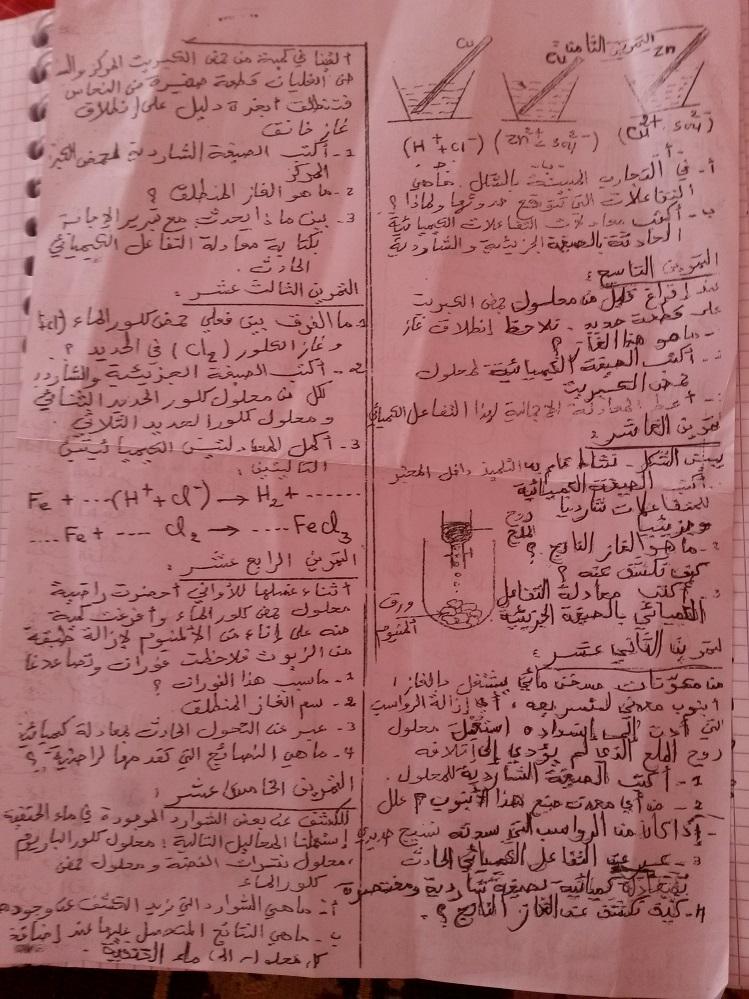 التمرين الثامن :
Cu
Cu
Zn
(H⁺ + Cl⁻) (Zn²⁺ + SO₄²⁻) (Cu²⁺ + SO₄²⁻)
أ- في التجارب المبينة بالشكل . ماهي
التفاعلات التي تتوقع حدوثها ولماذا ؟
ب- أكتب معادلات التفاعلات الكيميائية
الحادثة بالصيغة الجزيئية والشاردية
التمرين التاسع :
عند إفراغ قليل من محلول حمض الكبريت
على قطعة حديد . نلاحظ إنطلاق غاز
- ماهو هذا الغاز ؟
- أكتب الصيغة الكيميائية لمحلول
حمض الكبريت
- أعط المعادلة الإجمالية لهذا التفاعل الكيميائي
تمرين العاشر :
يبين الشكل نشاط قام به التلميذ داخل المخبر
- أكتب الصيغة الكيميائية
للمتفاعلات شارديا
وجزيئيا
- ماهو الغاز الناتج ؟
كيف نكشف عنه ؟
- أكتب معادلة التفاعل
الكيميائي بالصيغة الجزيئية
روح
الملح
ورق
المنيوم
تمرين الثاني عشر :
من مكونات مسخن مائي يشتغل بالغاز ،
أنبوب معدني لتسريبه ، أي إزالة الرواسب
التي أدت إلى انسداده استعمل محلول
روح الملح الذي لم يؤدي إلى إتلافه
1 - أكتب الصيغة الشاردية للمحلول .
2 - من أي معدن صنع هذا الأنبوب ؟ علل
- إذا كان من الرواسب التي سدته نسيج حديدي
3 - عبر عن التفاعل الكيميائي الحادث
بمعادلة كميائية بصيغة شاردية ومختصرة
4- كيف نكشف عن الغاز الناتج ؟
ألقينا في كمية من حمض الكبريت المركز
حتى الغليان قطعة صغيرة من النحاس
فتنطلق أبخرة دليل على إنطلاق
غاز خانق
1- أكتب الصيغة الشاردية لحمض
المركز
2- ماهو الغاز المنطلق ؟
3- بين ماذا يحدث مع تبرير الإجابة
بكتابة معادلة التفاعل الكيميائي
الحادث .
التمرين الثالث عشر :
1- ما الفرق بين فعلي حمض كلور الماء
وغاز الكلور (Cl₂) في الحديد ؟
2- أكتب الصيغة الجزيئية والشاردية
لكل من محلول كلور الحديد الثنائي
ومحلول كلور الحديد الثلاثي
3- أكمل المعادلتين الكيميائيتين
التاليتين :
Fe + ....(H⁺ + Cl⁻) → H₂ + .......
.... Fe + .... Cl₂ → .... FeCl₃
التمرين الرابع عشر :
أثناء غسلها للأواني أحضرت راضية
محلول حمض كلور الماء وأفرغت كمية
منه على إناء من الألمنيوم لإزالة طبقة
من الزيوت فلاحظت فوران وتصاعد غاز
1- ماسبب هذا الفوران ؟
2- سم الغاز المنطلق
3- عبر عن التحول الحادث بمعادلة كيميائية
4- ماهي النصائح التي تقدمها لراضية ؟
التمرين الخامس عشر :
للكشف عن بعض الشوارد الموجودة في ماء الحنفية
إستعملنا المحاليل التالية : محلول كلور الباريوم
، محلول نترات الفضة ومحلول حمض
كلور الماء
أ- ماهي الشوارد التي نريد الكشف عن وجودها
ب- ماهي النتائج المتحصل عليها عند إضافة
كل محلول إلى ماء الحنفية